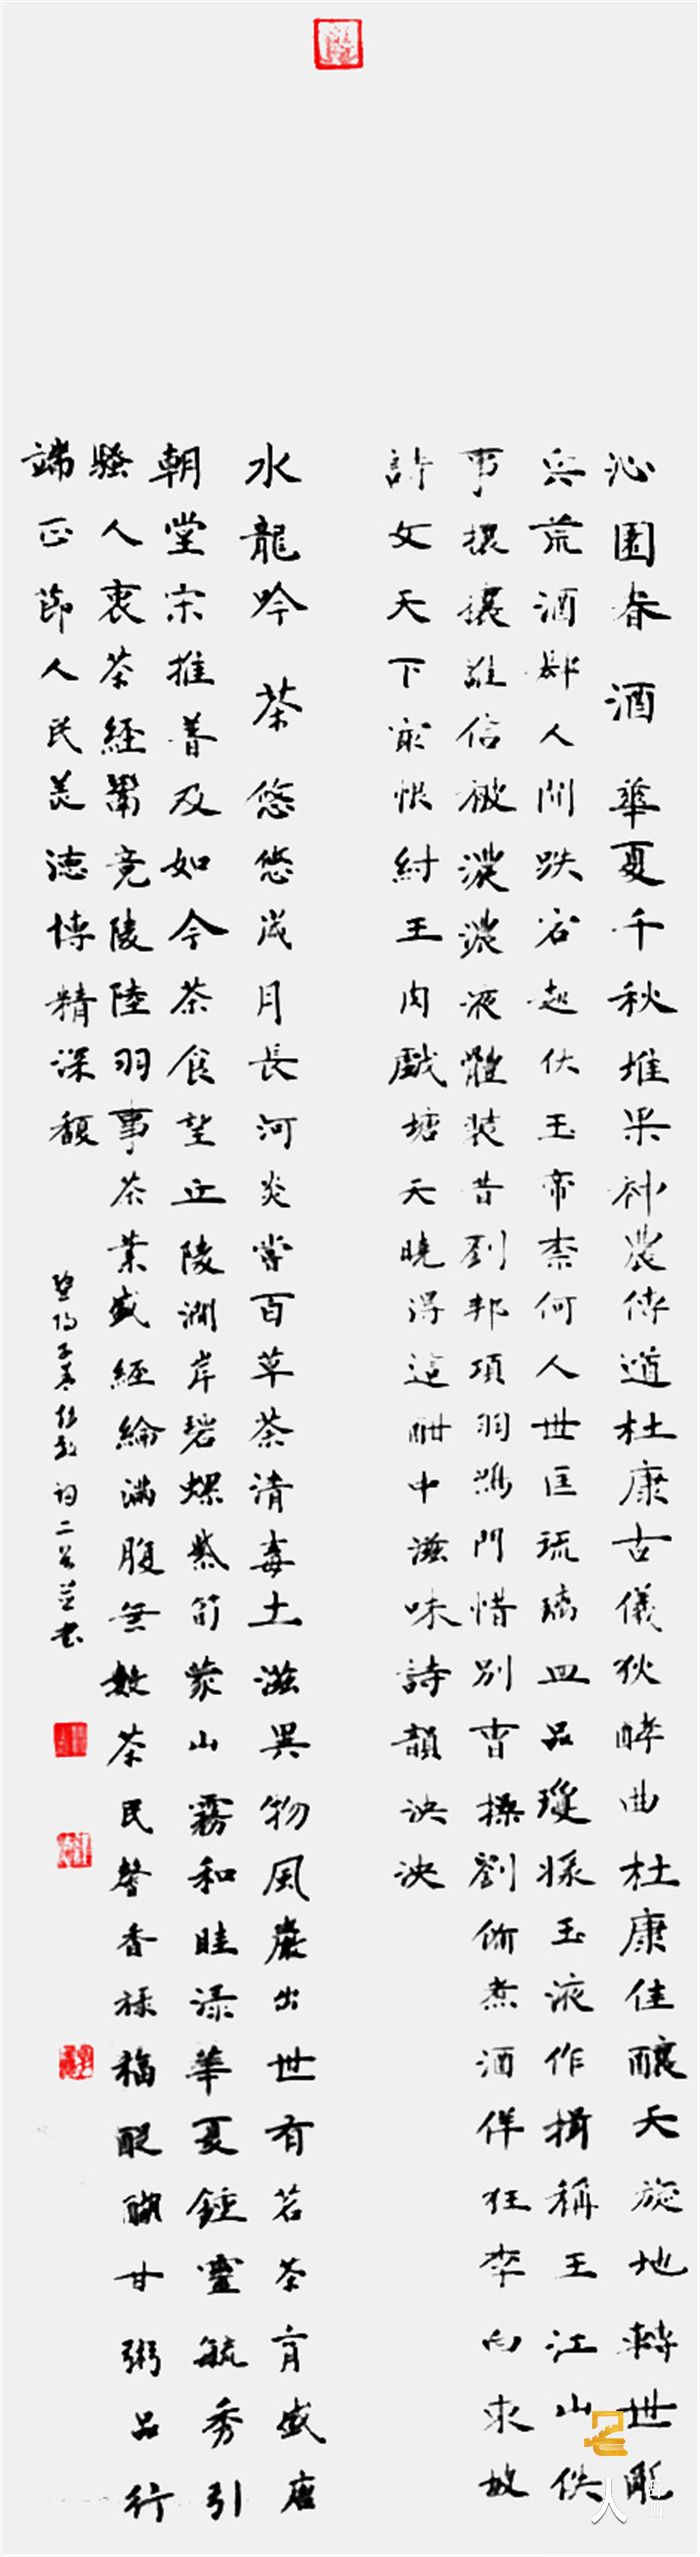 沁園春 酒 華夏千秋堆果神農傳道杜康古儀狄酵曲杜康佳釀天旋地轉世亂
兵荒酒肆人間跌宕起伏玉帝柰何人世匡琉璃皿品瓊漿玉液作揖稱王江山佚
事攘攘誰信被濃濃液體裝昔劉邦項羽鴻門惜別曹操劉備煮酒佯狂李白求放
許女天下寂恨紂王肉戲塘天曉得這酣中滋味詩韻決決
水龍吟 茶 悠悠歲月長河炎嘗百草茶清毒土滋異物風嚴出世有茗茶育盛唐
朝堂宋推普及如今茶食望丘陵澗岸碧螺紫筍蒙山霧和畦淥華夏鍾靈毓秀引
騷人衷茶經學竟陵陸羽事茶業盛經綸滿腹無數茶民馨香祿福醍醐甘粥品行
端正節人民美德博精深馥
詞二首並書
人